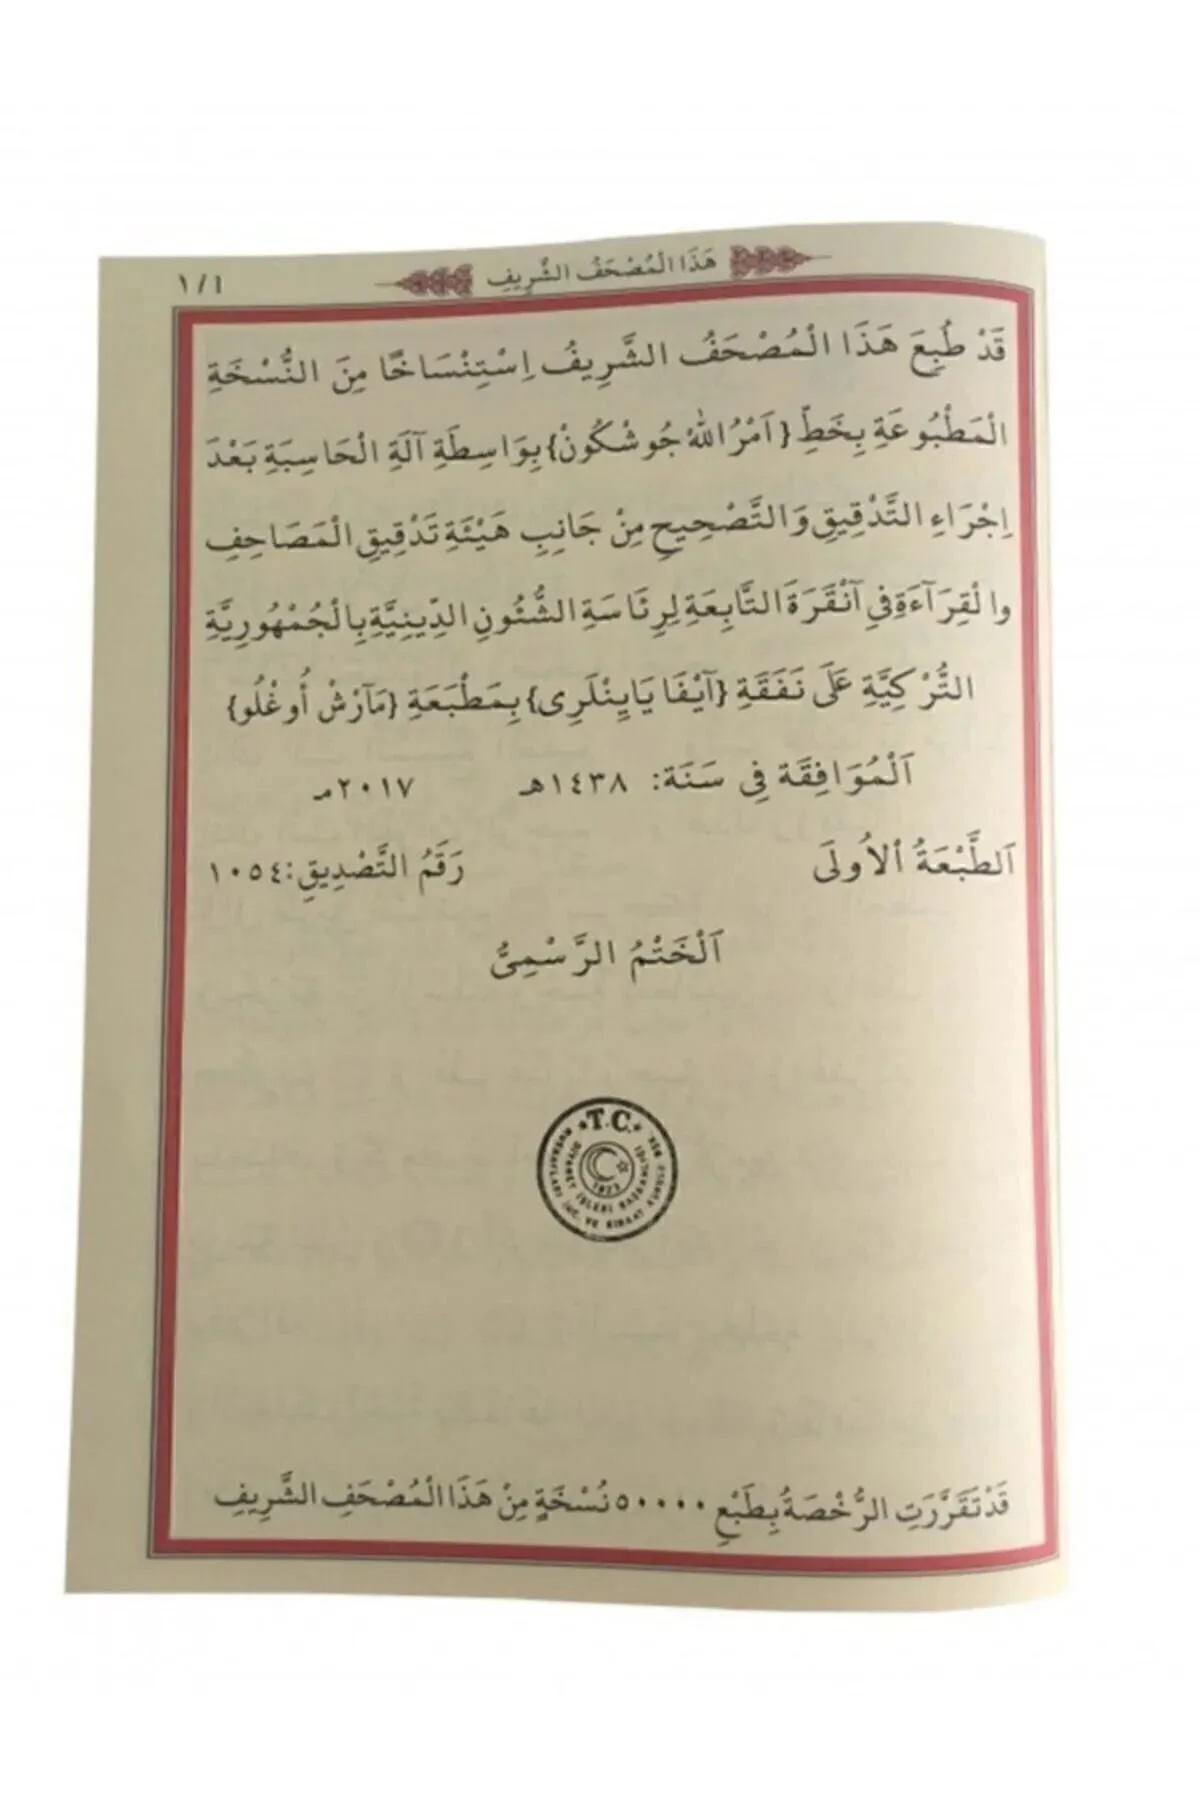 هَذَا الْمُصْحَفُ الشَّرِيفِ
١/١
قَدْ طُبِعَ هَذَا الْمُصْحَفُ الشَّرِيفُ اِسْتِنْسَاخًا مِنَ النُّسْخَةِ
الْمَطْبُوعَةِ بِخَطِّ {اَمْرُ اللهْ جُوشْكُونْ} بِوَاسِطَةِ آلَةِ الْحَاسِبَةِ بَعْدَ
اِجْرَاءِ التَّدْقِيقِ وَالتَّصْحِيحِ مِنْ جَانِبِ هَيْئَةِ تَدْقِيقِ الْمَصَاحِفِ
والْقِرَآءَةِ فِي آنْقَرَةَ التَّابِعَةِ لِرِئَاسَةِ الشُّئُونِ الدِّينِيَّةِ بِالْجُمْهُورِيَّةِ
التُّرْكِيَّةِ عَلَى نَفَقَةِ {آيْفَا يَايِنْلَرِى} بِمَطْبَعَةِ {مَآرْشْ أُوغْلُو}
اَلْمُوَافِقَة فِي سَنَة: ١٤٣٨هـ ٢٠١٧مـ
اَلطَّبْعَةُ اْلاُولَى رَقَمُ التَّصْدِيقِ: ١٠٥٤
اَلْخَتْمُ الرَّسْمِىُّ
T.C.
DİYANET İŞLERİ BAŞKANLIĞI
MUSHAFLARI İNC. VE KIRAAT KURULU BŞK.
1923
قَدْ تَقَرَّرَتِ الرُّخْصَةُ بِطَبْعِ ٥٠٠٠٠ نُسْخَةٍ مِنْ هَذَا الْمُصْحَفِ الشَّرِيفِ